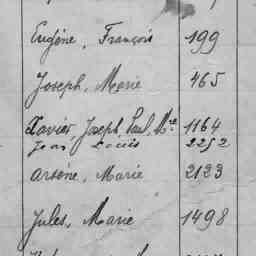 Eugène, François 199
Joseph, Marie 465
Xavier, Joseph, Paul, Mie 1164
Jean Louis 2252
Arsène, Marie 2123
Jules, Marie 1498